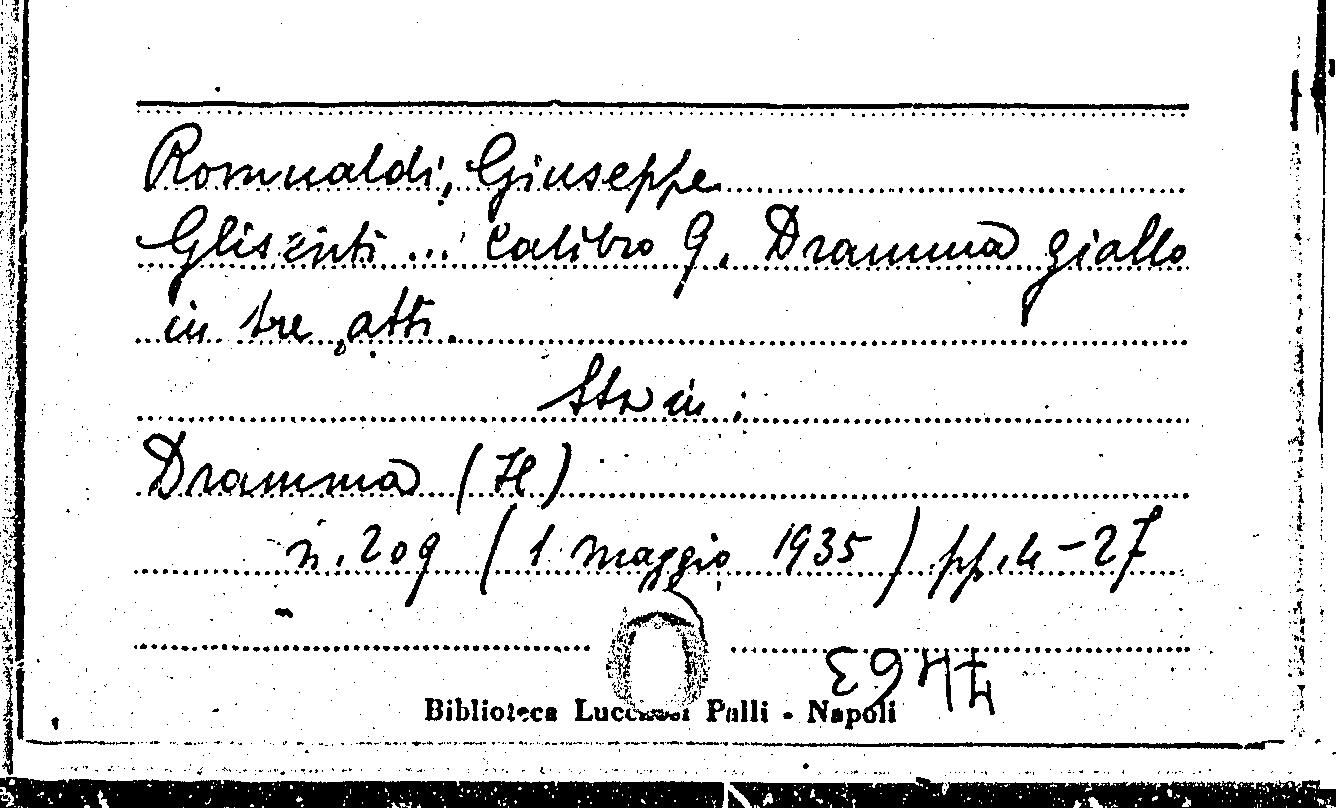 Romualdi, Giuseppe
Glisenti ... Calibro 9. Dramma giallo
in tre atti.
Sta in:
Dramma (Il)
n. 209 (1 maggio 1935) pp. 4-27
Biblioteca Lucchesi Palli - Napoli